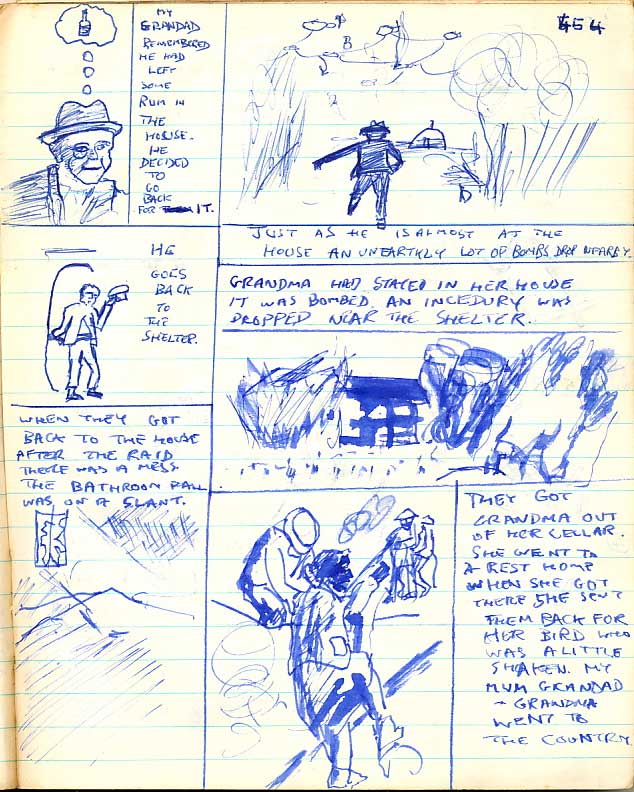 MY
GRANDAD
REMEMBERED
HE HAD
LEFT
SOME
RUM IN
THE
HOUSE.
HE
DECIDED
TO
GO
BACK
FOR IT.
454
B
JUST AS HE IS ALMOST AT THE
HOUSE AN UNEARTHLY LOT OF BOMBS DROP NEARBY.
HE
GOES
BACK
TO
THE
SHELTER.
GRANDMA HAD STAYED IN HER HOUSE
IT WAS BOMBED. AN INCEDURY WAS
DROPPED NEAR THE SHELTER.
WHEN THEY GOT
BACK TO THE HOUSE
AFTER THE RAID
THERE WAS A MESS
THE BATHROOM WALL
WAS ON A SLANT.
THEY GOT
GRANDMA OUT
OF HER CELLAR.
SHE WENT TO
A REST HOME
WHEN SHE GOT
THERE SHE SENT
THEM BACK FOR
HER BIRD WHO
WAS A LITTLE
SHAKEN. MY
MUM GRANDAD
+ GRANDMA
WENT TO
THE COUNTRY.